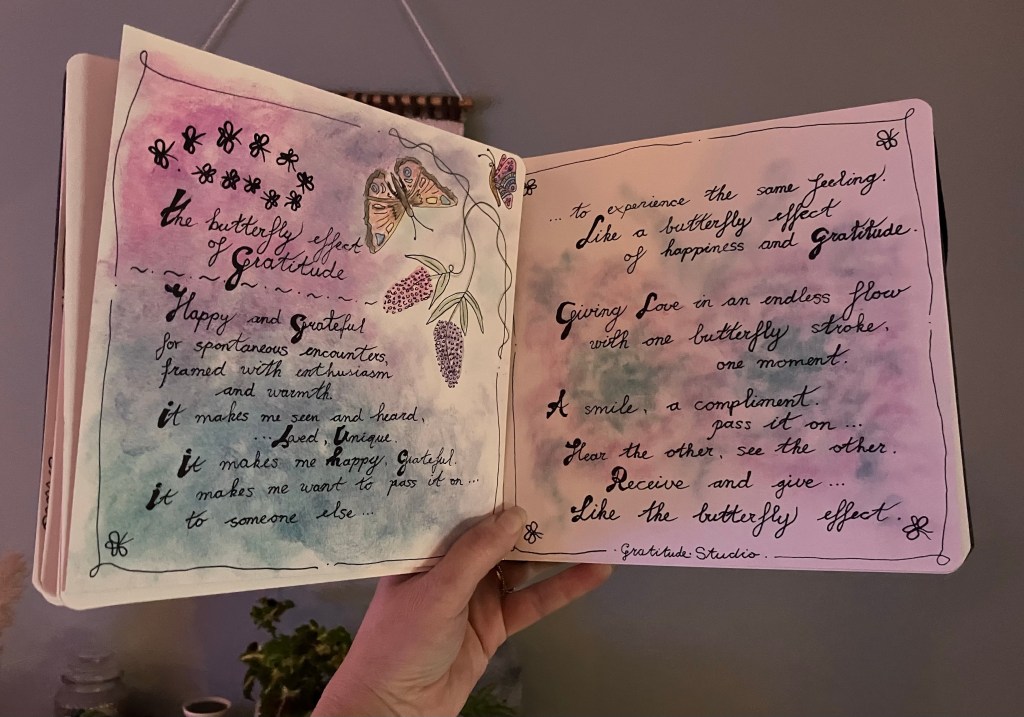 the butterfly effect
of Gratitude
Happy and Grateful
for spontaneous encounters,
framed with enthusiasm
and warmth.
it makes me seen and heard,
...Loved, Unique.
it makes me happy, Grateful.
it makes me want to pass it on...
to someone else...
... to experience the same feeling.
Like a butterfly effect
of happiness and Gratitude.
Giving Love in an endless flow
with one butterfly stroke,
one moment.
A smile, a compliment.
pass it on ...
Hear the other, see the other.
Receive and give ...
Like the butterfly effect.
Gratitude Studio.